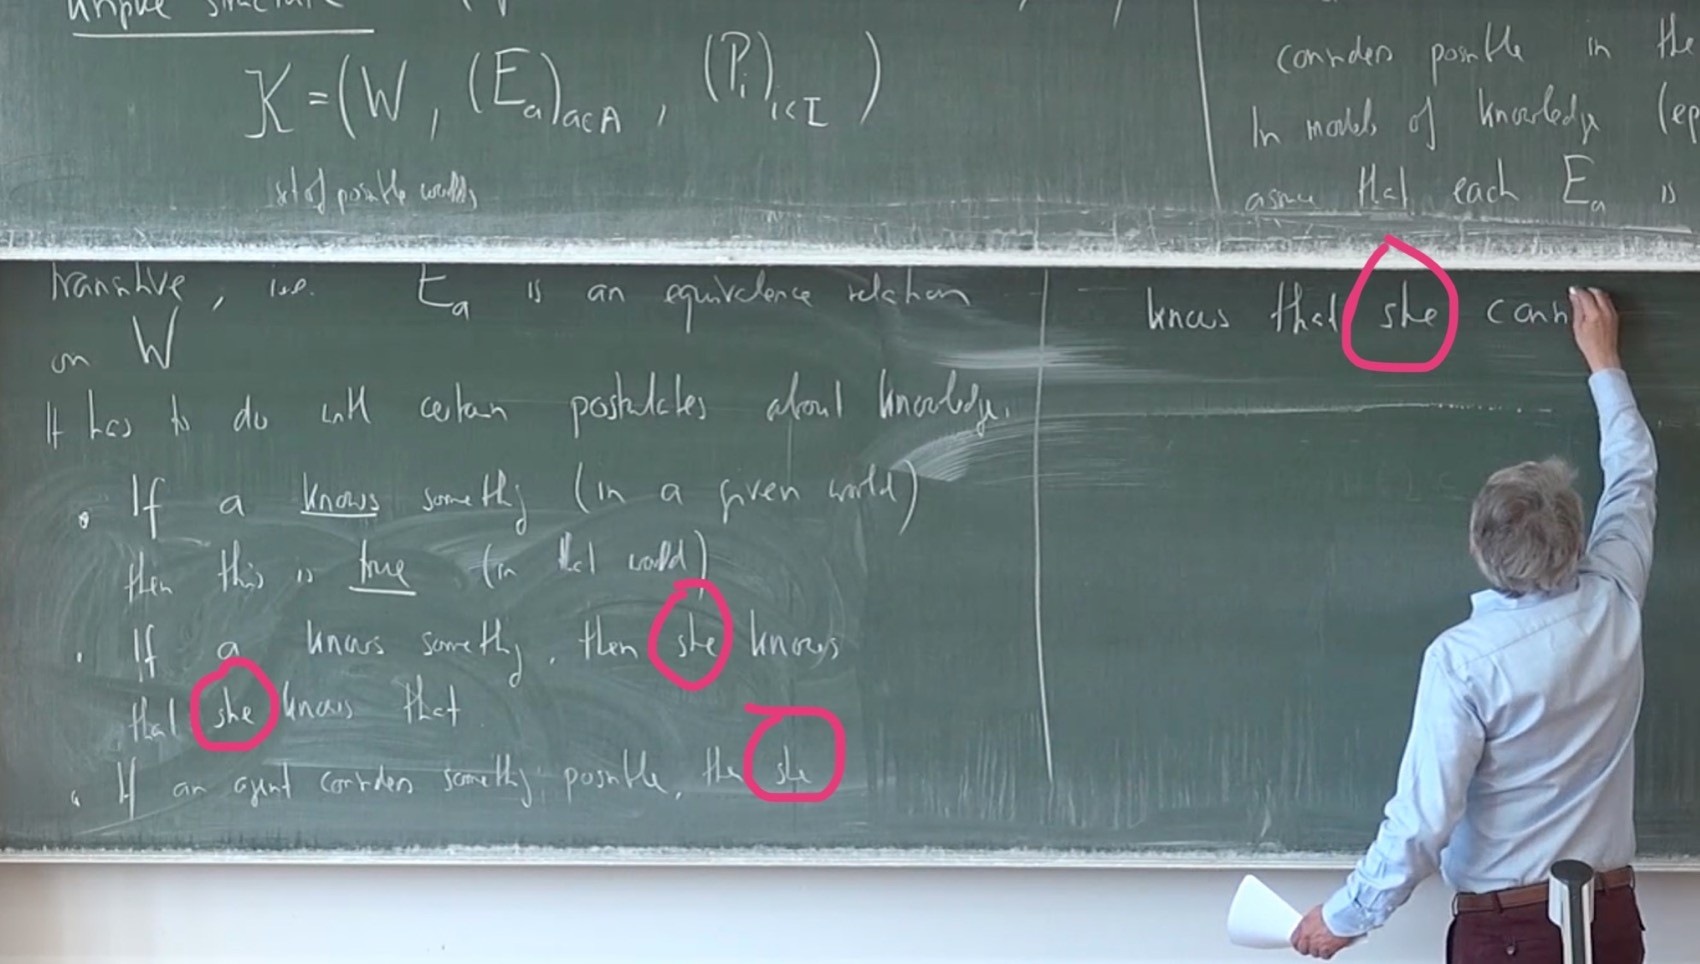 Kripke structure
K = (W, (E_a)_{a∈A}, (P_i)_{i∈I})
set of possible worlds
considers possible in the
In models of knowledge (ep
assume that each E_a is
transitive, i.e. E_a is an equivalence relation
on W
It has to do with certain postulates about knowledge.
• If a knows something (in a given world)
then this is true (in that world)
• If a knows something, then she knows
that she knows that.
• If an agent considers something possible, then she
knows that she con